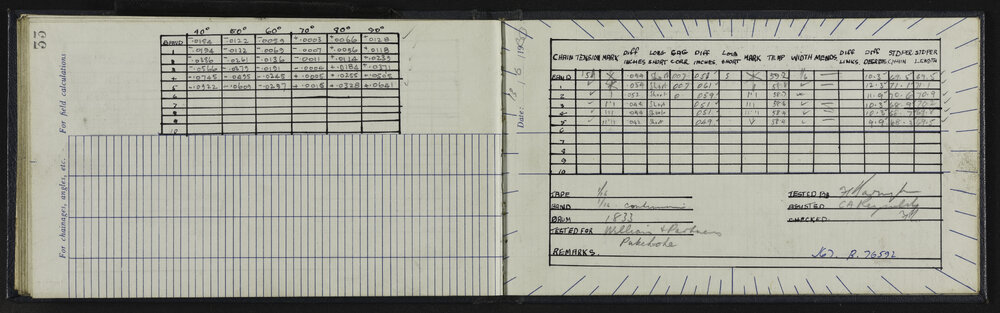 33
For field calculations
For chainages, angles, etc.
40° 50° 60° 70° 80° 90°
BAND -.0194 -.0122 -.0059 +.0003 +.0066 +.0128
1 -.0194 -.0132 -.0069 -.0007 +.0056 +.0118
2 -.0386 -.0261 -.0136 -.0011 +.0114 +.0239
3 -.0566 -.0379 -.0191 -.0004 +.0184 +.0371
4 -.0745 -.0495 -.0245 +.0005 +.0255 +.0505
5 -.0922 -.0609 -.0297 +.0015 +.0328 +.0641
6
7
8
9
10
Date:
CHAIN TENSION MARK DIFF INCHES LONG SHORT CORR DIFF INCHES LONG SHORT MARK TEMP WIDTH MENDS DIFF LINKS DIFF DEGREES STD.PER CHAIN STD PER LENGTH
BAND 15 Short .007 .058 S 59.2 10.3 69.5 69.5
1 .054 Short .007 .061 58.9 12.3 71.1 71.1
2 .052 Short 0 .059 11.9 70.6 70.9
3 .044 Short .051 58.6 10.3 68.9
4 .044 Short .051 58.4 10.3
5 .042 Short .049 58.4 9.9 68.3 69.5
6
7
8
9
10
TAPE
BAND 1/16 continuous
DRUM 1833
TESTED FOR William & Partners
Pukekohe
REMARKS.
TESTED BY
ASSISTED CA Reynolds
CHECKED.
R. 76592